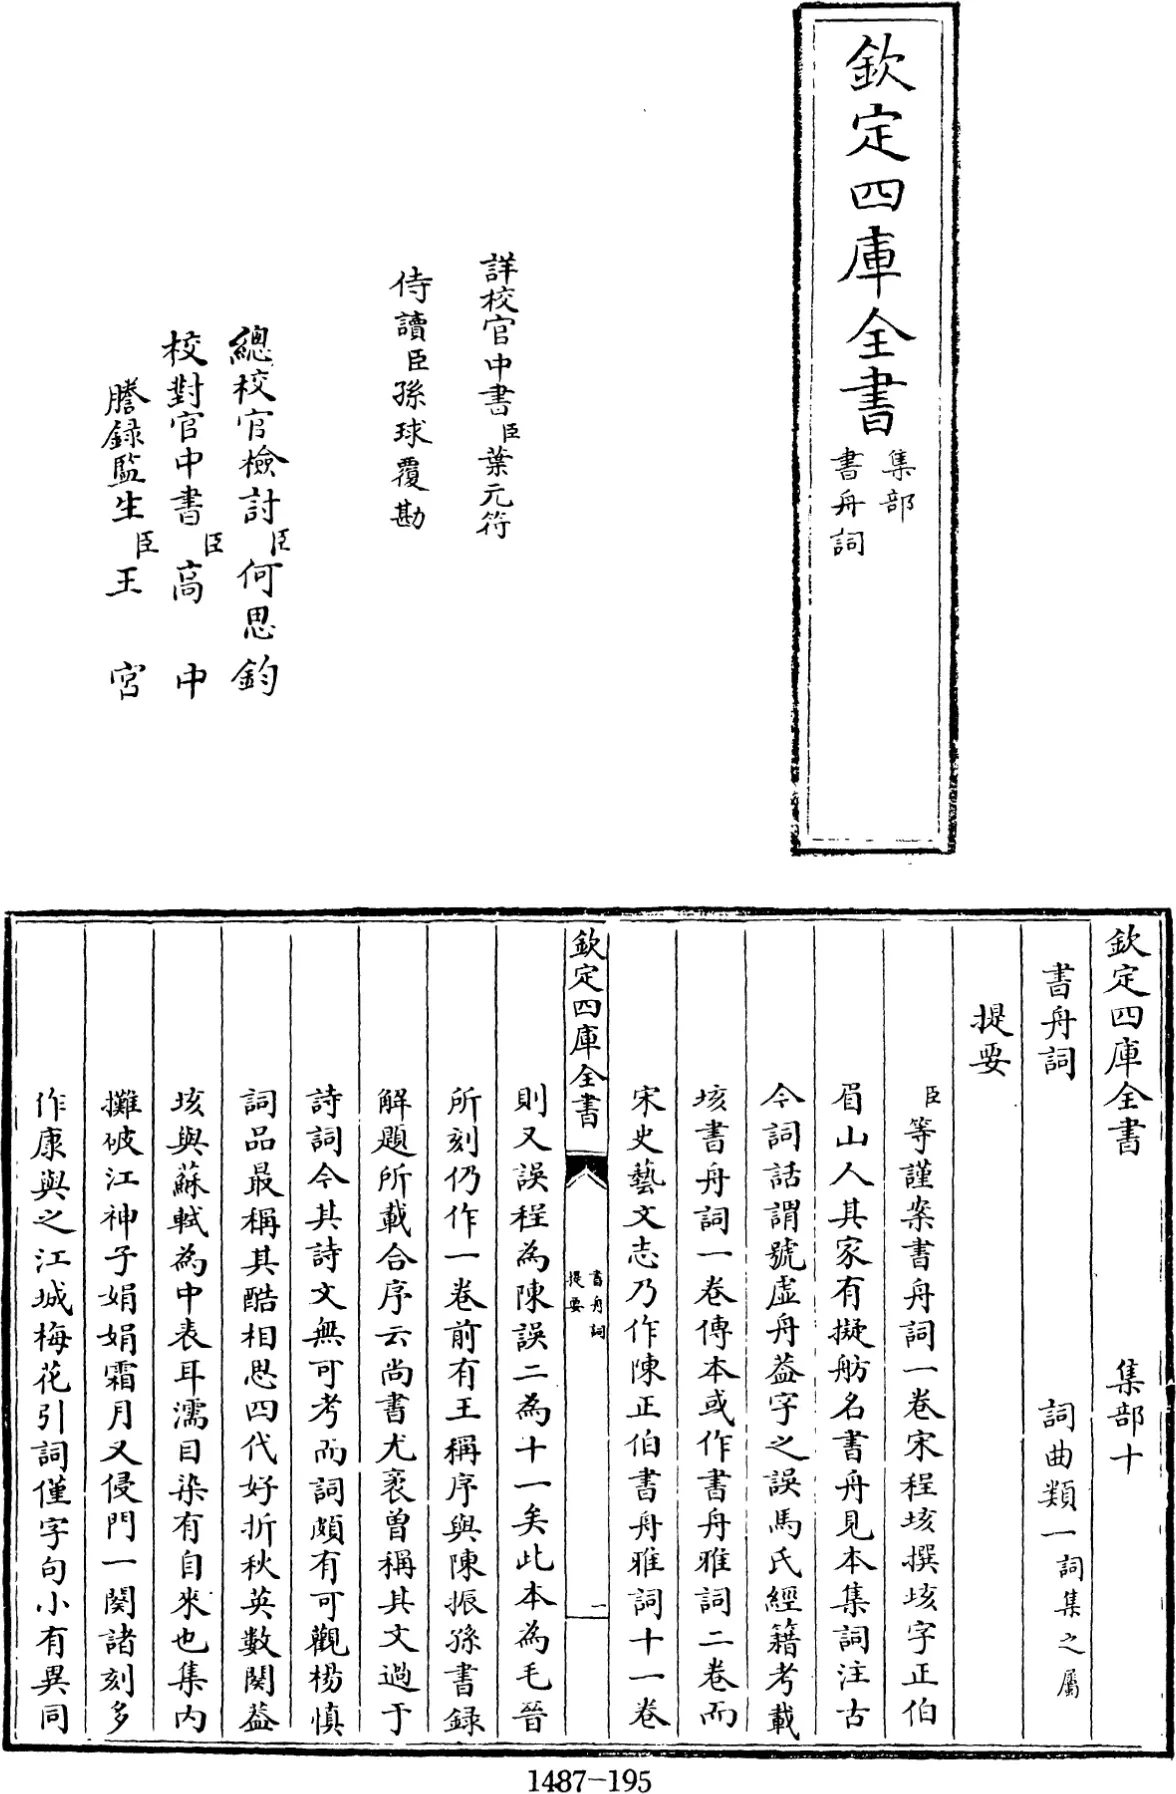 欽定四庫全書
集部
書舟詞
詳校官中書臣葉元符
侍讀臣孫球覆勘
總校官檢討臣何思鈞
校對官中書臣高中
謄錄監生臣王宮
欽定四庫全書 集部十
書舟詞 詞曲類一詞集之屬
提要
臣等謹案書舟詞一卷宋程垓撰垓字正伯
眉山人其家有擬舫名書舟見本集詞注古
今詞話謂號虛舟葢字之誤馬氏經籍考載
垓書舟詞一卷傳本或作書舟雅詞二卷而
宋史藝文志乃作陳正伯書舟雅詞十一卷
欽定四庫全書
書舟詞
提要
一
則又誤程為陳誤二為十一矣此本為毛晉
所刻仍作一卷前有王稱序與陳振孫書録
解題所載合序云尚書尤袤曾稱其文過于
詩詞今其詩文無可考而詞頗有可觀楊慎
詞品最稱其酷相思四代好折秋英數闋葢
垓與蘇軾為中表耳濡目染有自來也集內
攤破江神子娟娟霜月又侵門一闋諸刻多
作康與之江城梅花引詞僅字句小有異同
1487-195